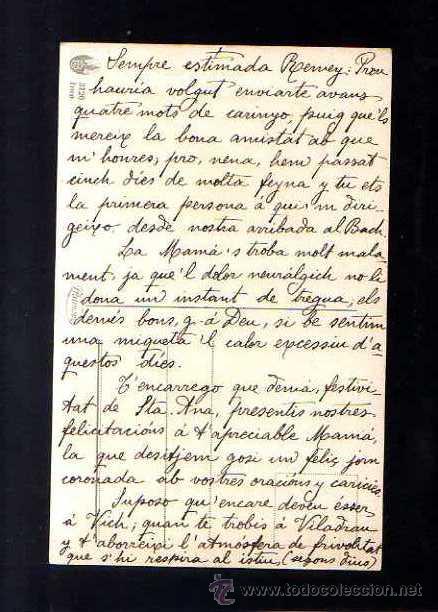 Sempre estimada Remey: Prou
hauria volgut enviarte avans
quatre mots de carinyo, puig que'ls
mereix la bona amistat ab que
m'honres, pro, nena, hem passat
cinch dies de molta feyna y tu ets
la primera persona á qui m diri-
geixo desde nostra arribada al Bach.
La Mamá s troba molt mala-
ment, ja que'l dolor neurálgich no li
dona un instant de tregua, els
demés bons, g. á Deu, si be sentim
una miqueta 'l calor excessiu d'a
questos dies.
T'encarrego que demá, festivi-
tat de Sta. Ana, presentis nostres
felicitacións á t'apreciable Mamá,
la que desitjem gosi un felic jorn
coronada ab vostres oracions y caricies.
Suposo qu'encare deveu ésser
á Vich; quan te trobis á Viladrau
y t'aborreixi l'atmósfera de frivolitat
que s'hi respira al istiu, (segons dius)
todocoleccion.net